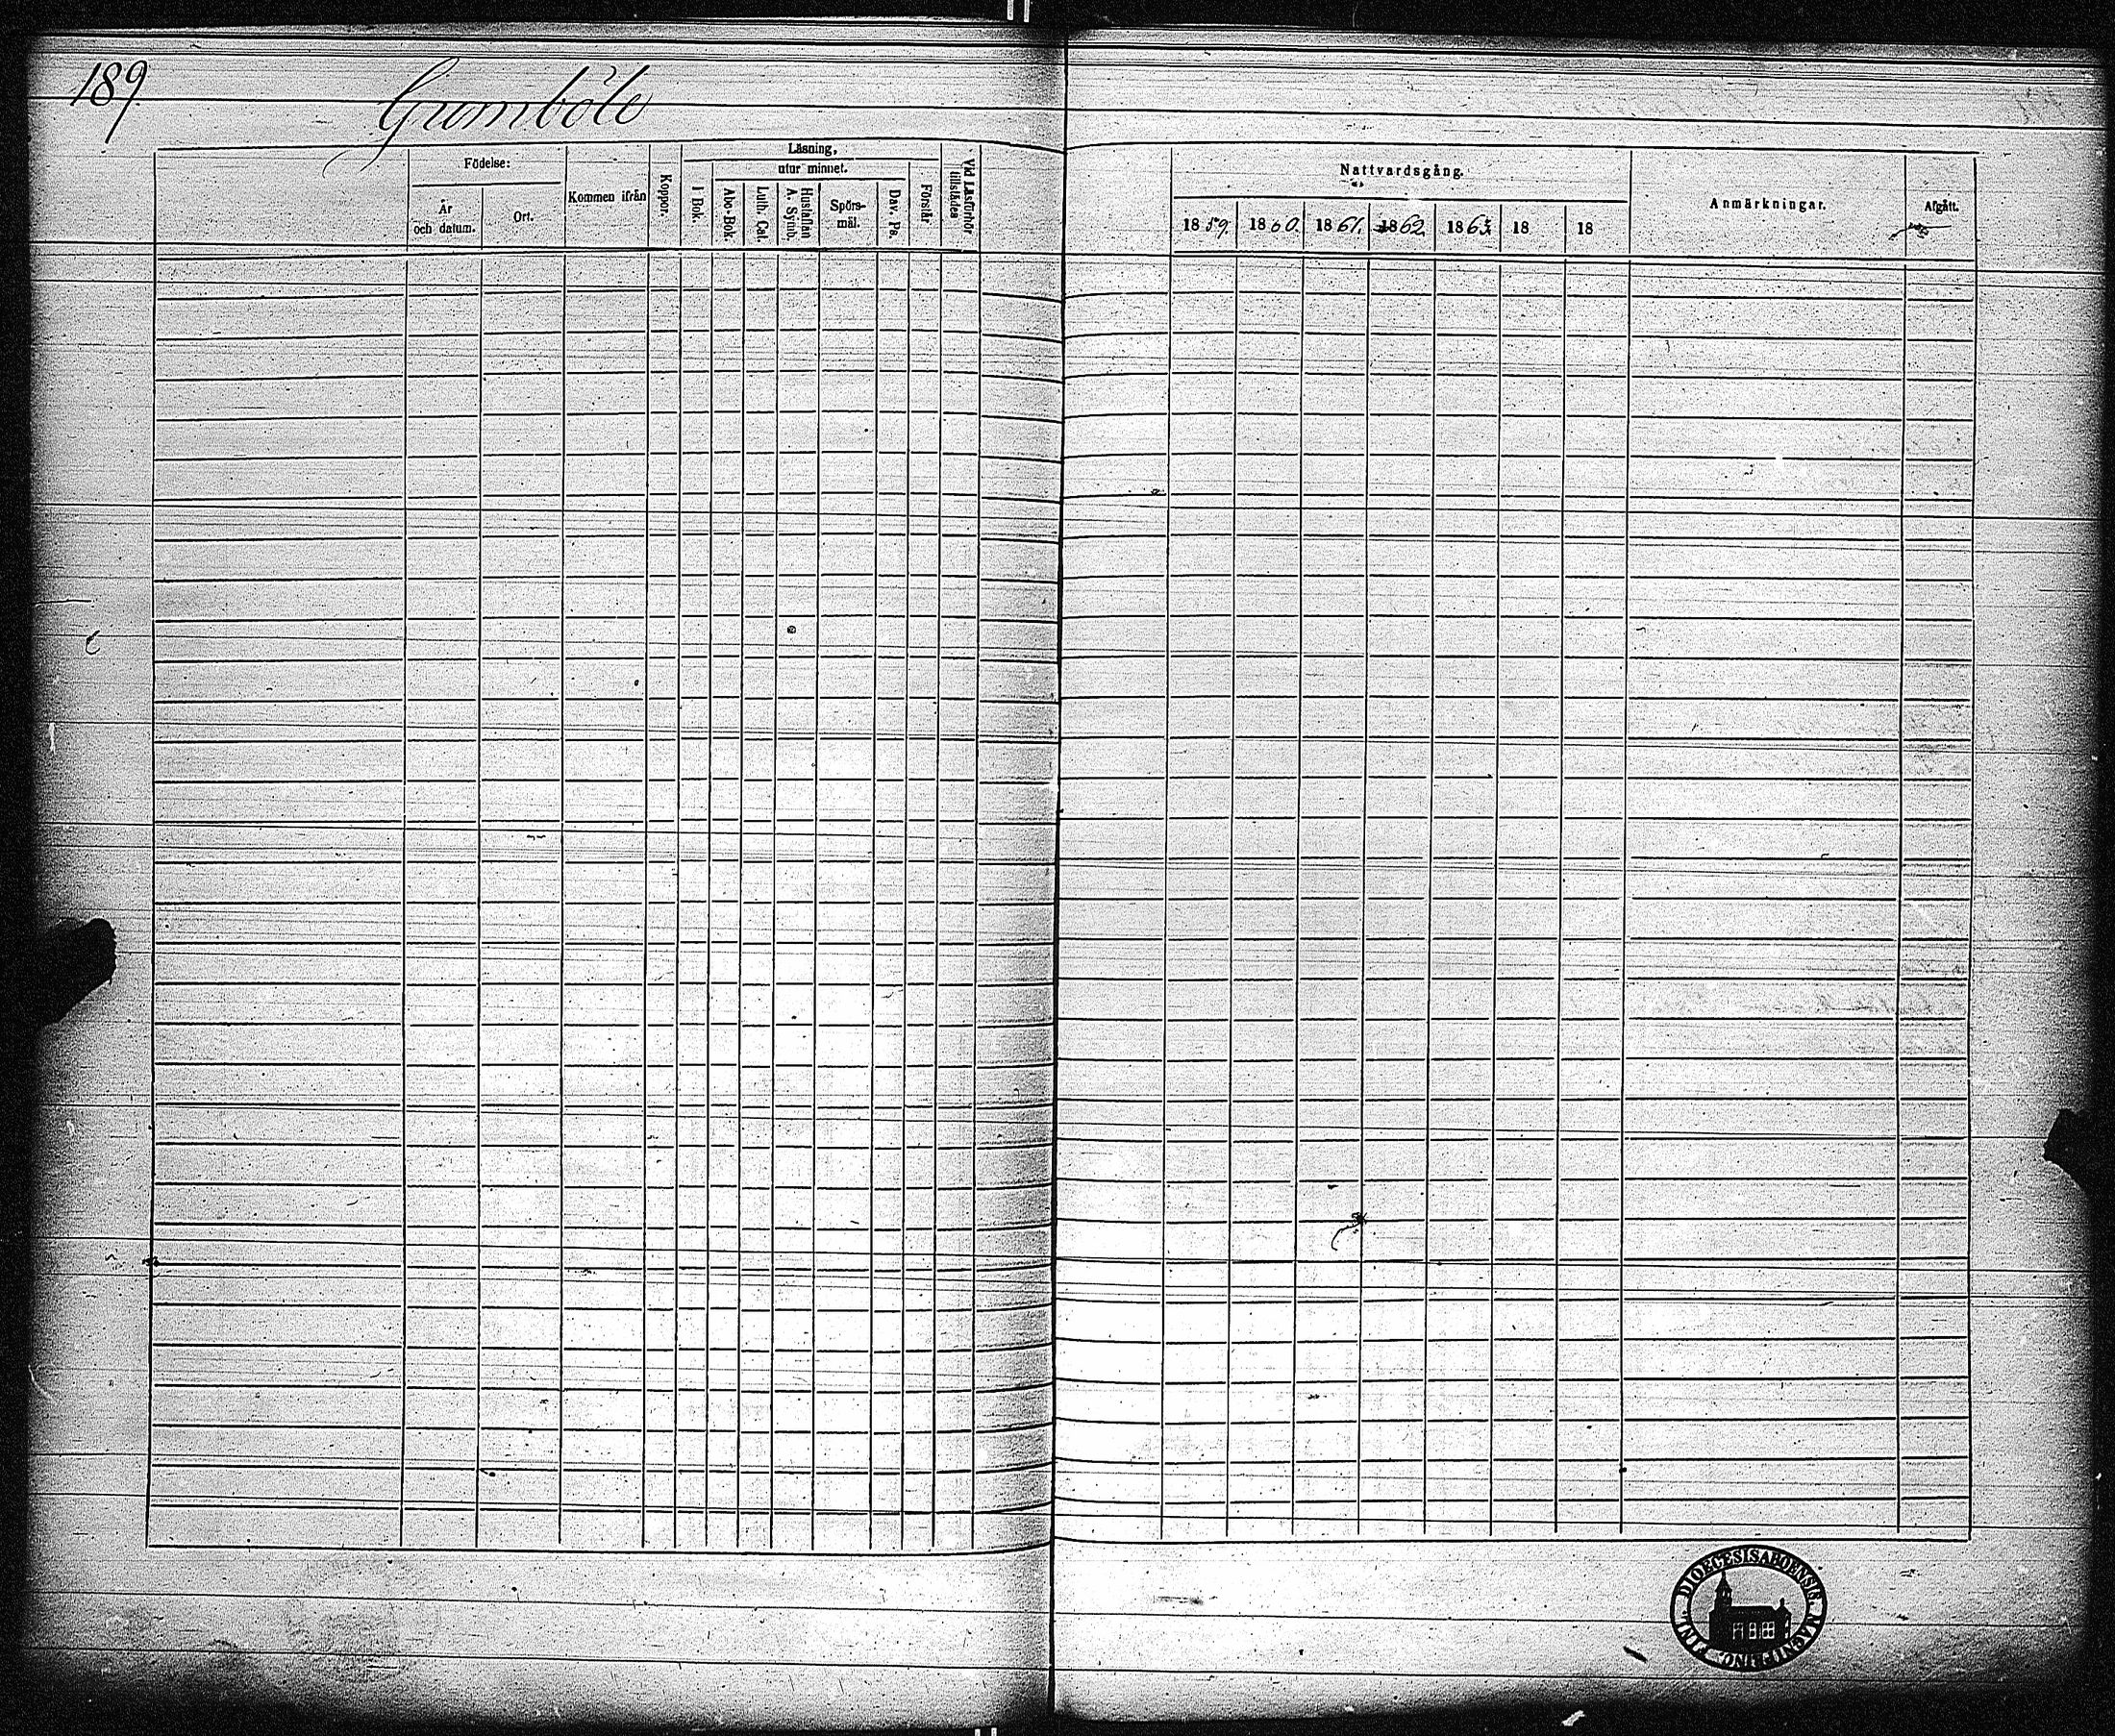 189.
Gumböle
Födelse:
År
och datum.
Ort.
Kommen ifrån
Koppor.
Läsning,
utur minnet.
I Bok.
Abc-Bok.
Luth. Cat.
Hustaflan
A. Symb.
Spörs-
mål.
Dav. Ps.
Förstår
Vid Läsförhör
tillstädes
Nattvardsgång.
1859. 1860. 1861. 1862. 1863. 18 18
Anmärkningar.
Afgått.
DIOECESIS ABOENSIS